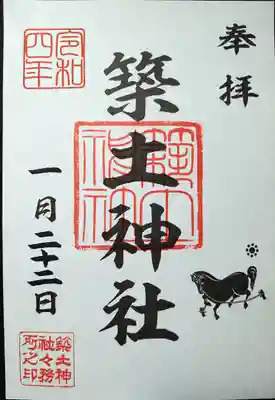 奉拝
築土神社
築土神社
令和四年
一月二十二日
築土神
社々務
所之印